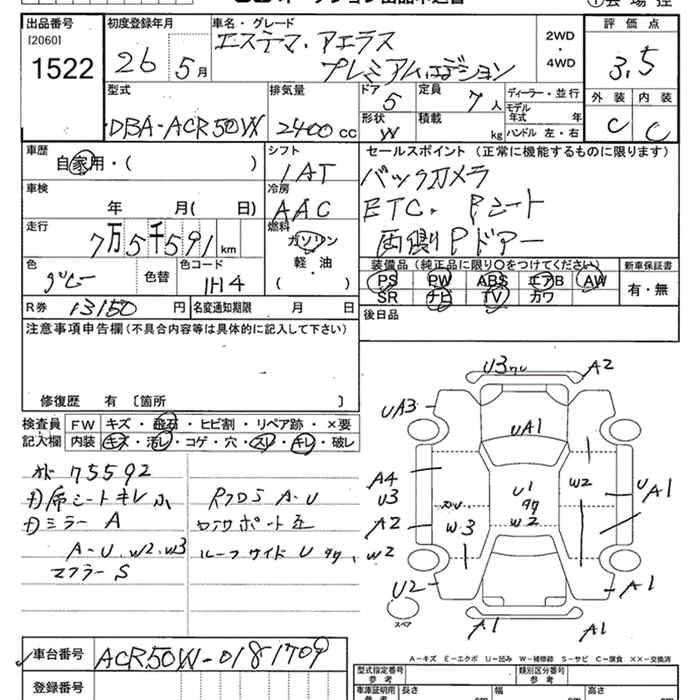 出品番号
[2060]
1522
初度登録年月
26 5月
車名・グレード
エスティマ.アエラス
プレミアムエディション
2WD
・
4WD
評価点
3.5
外装 内装
C C
型式
DBA-ACR50W
排気量
2400 cc
ドア
5
定員
7人
形状
W
積載
kg
ディーラー・並行
モデル
年式 年
ハンドル 左・右
車歴
自家用・( )
シフト
IAT
車検
年 月( 日)
冷房
AAC
走行
7万5千591 km
燃料
ガソリン
軽・油
( )
色
グレー
色替
色コード
1H4
R券 13150 円
名変通知期限 月 日
セールスポイント (正常に機能するものに限ります)
バックカメラ
ETC. Pシート
両側Pドアー
装備品(純正品に限り○をつけてください)
PS PW ABS エアB AW
SR ナビ TV カワ
新車保証書
有・無
後日品
注意事項申告欄(不具合内容等は具体的に記入して下さい)
修復歴 有 〔箇所 〕
検査員
記入欄
FW キズ・飛石・ヒビ割・リペア跡・×要
内装 キズ・汚レ・コゲ・穴・スレ・キレ・破レ
75592
席シートキレ小
ミラー A
A-U.W2.W3
マフラーS
A-U
サポート
ルーフサイド U W2
U3 A2
UA3
UA1
A4
U3
A2
U1
W2
W2
W3
UA1
U2
A1
スペア
A1
A1
車台番号 ACR50W-0181709
登録番号
A-キズ E-エクボ U-凹み W-補修跡 S-サビ C-腐食 ××-交換済
型式指定番号
参考
類別区分番号
参考
車庫証明用
参考
長さ cm
幅 cm
高さ cm